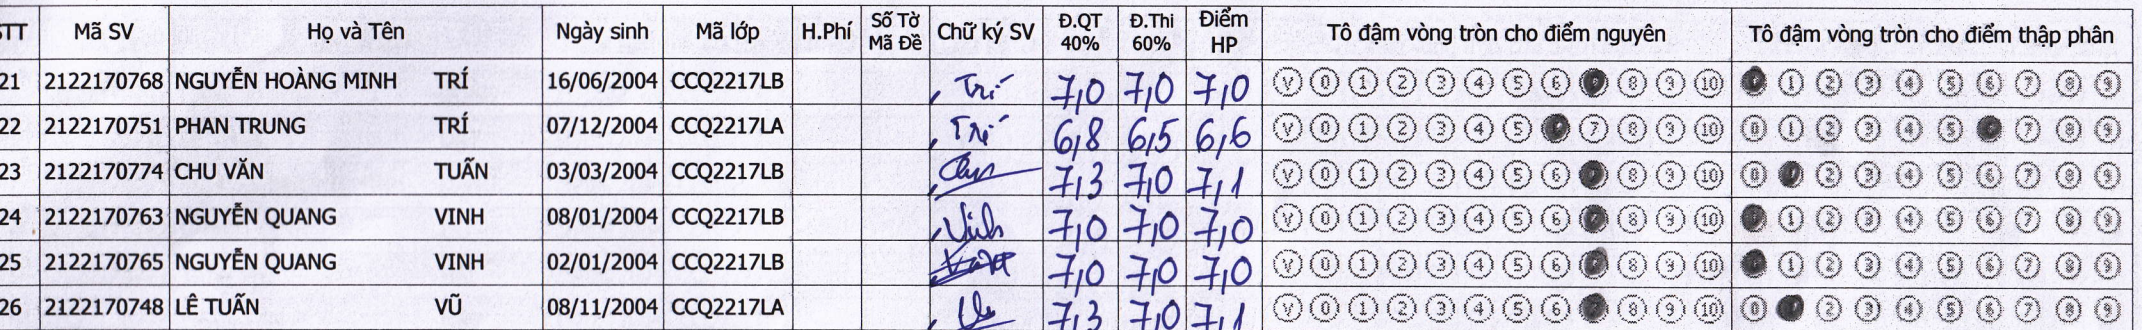 STT Mã SV Họ và Tên Ngày sinh Mã lớp H.Phí Số Tờ Mã Đề Chữ ký SV Đ.QT 40% Đ.Thi 60% Điểm HP Tô đậm vòng tròn cho điểm nguyên Tô đậm vòng tròn cho điểm thập phân
21 2122170768 NGUYỄN HOÀNG MINH TRÍ 16/06/2004 CCQ2217LB Trí 7,0 7,0 7,0 V 0 1 2 3 4 5 6 8 9 10 1 2 3 4 5 6 7 8 9
22 2122170751 PHAN TRUNG TRÍ 07/12/2004 CCQ2217LA Trí 6,8 6,5 6,6 V 0 1 2 3 4 5 7 8 9 10 0 1 2 3 4 5 7 8 9
23 2122170774 CHU VĂN TUẤN 03/03/2004 CCQ2217LB 7,3 7,0 7,1 V 0 1 2 3 4 5 6 8 9 10 0 2 3 4 5 6 7 8 9
24 2122170763 NGUYỄN QUANG VINH 08/01/2004 CCQ2217LB Vinh 7,0 7,0 7,0 V 0 1 2 3 4 5 6 8 9 10 1 2 3 4 5 6 7 8 9
25 2122170765 NGUYỄN QUANG VINH 02/01/2004 CCQ2217LB 7,0 7,0 7,0 V 0 1 2 3 4 5 6 8 9 10 1 2 3 4 5 6 7 8 9
26 2122170748 LÊ TUẤN VŨ 08/11/2004 CCQ2217LA 7,3 7,0 7,1 V 0 1 2 3 4 5 6 8 9 10 0 2 3 4 5 6 7 8 9